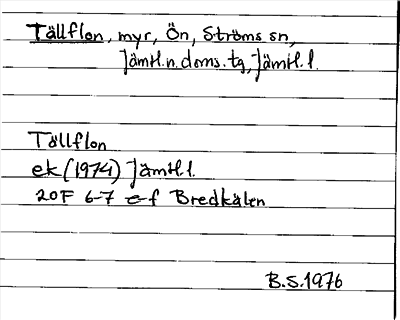 Tällflon, myr, Ön, Ströms sn,
Jämtl.n.doms.tg, Jämtl.l.
Tällflon
ek (1974) Jämtl.l.
20F 6-7 e-f Bredkälen
B.S. 1976